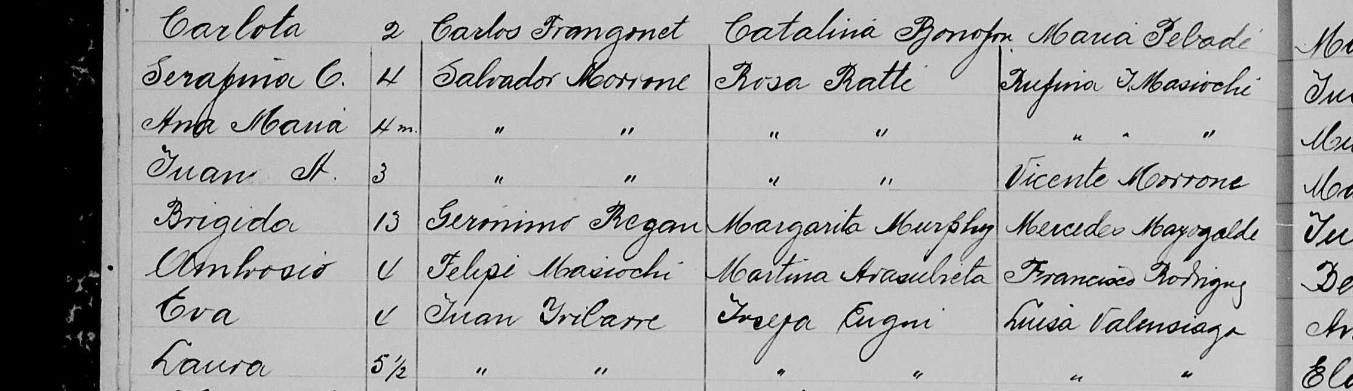 Carlota 2 Carlos Frangonet Catalina Bonofon Maria Pebadé Mu
Serafina C. 4 Salvador Morrone Rosa Ratti Rufina I. Masiochi Ju
Ana Maria 4 m. " " " " " " " Mu
Juan A. 3 " " " " Vicente Morrone Ma
Brigida 13 Geronimo Regan Margarita Murphy Mercedes Mayogalde Ju
Ambrosio 4 Felipe Masiochi Martina Arasubieta Francisco Rodrigug De
Eva 4 Juan Yrilarre Josefa Eugni Luisa Valensiaga An
Laura 5 1/2 " " " " " " Elo